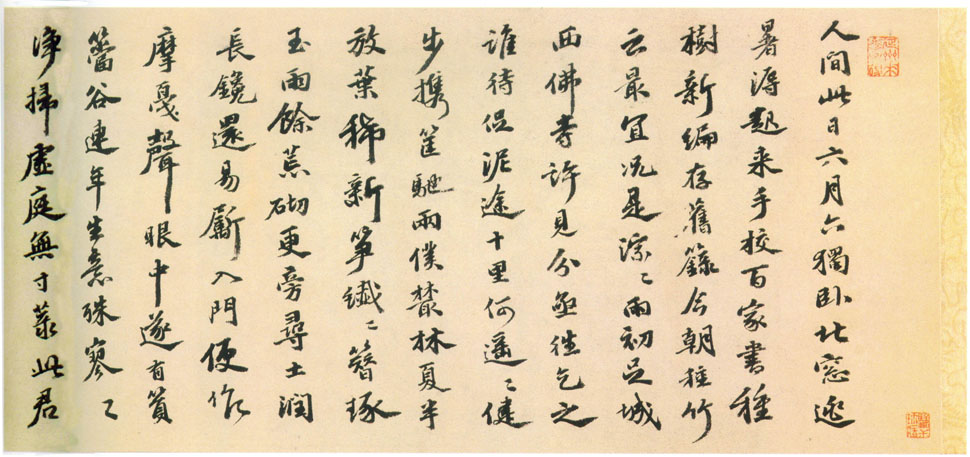 人間此日六月六獨卧北窓逃
暑溽起来手校百家書種
樹新編存舊籙今朝種竹
云最宜況是淙〻雨初足城
西佛寺許見分亟往乞之
誰待促泥途十里何遙〻健
步携筐馳兩僕叢林夏半
放葉稀新筝纖〻簪琢
玉雨餘荒砌更旁尋土潤
長鑱還易斸入門便作
摩戛聲眼中遂有篔
簹谷連年生意殊寥〻
净掃虛庭無寸菉此君